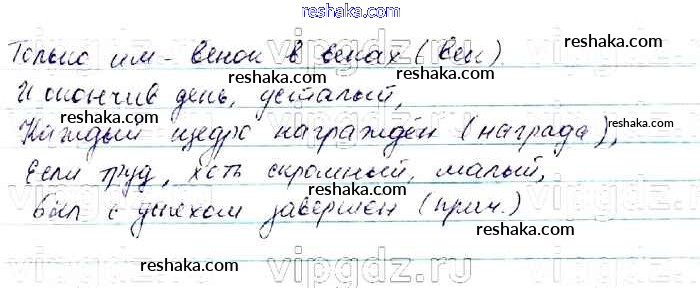 reshaka.com
Только им - венок в веках (век).
reshaka.com
И окончив день, усталый,
Каждый щедро награждён (награда),
reshaka.com
Если труд, хоть скромный, малый,
reshaka.com
Был с успехом завершён (прич.)
reshaka.com
vipgdz.ru